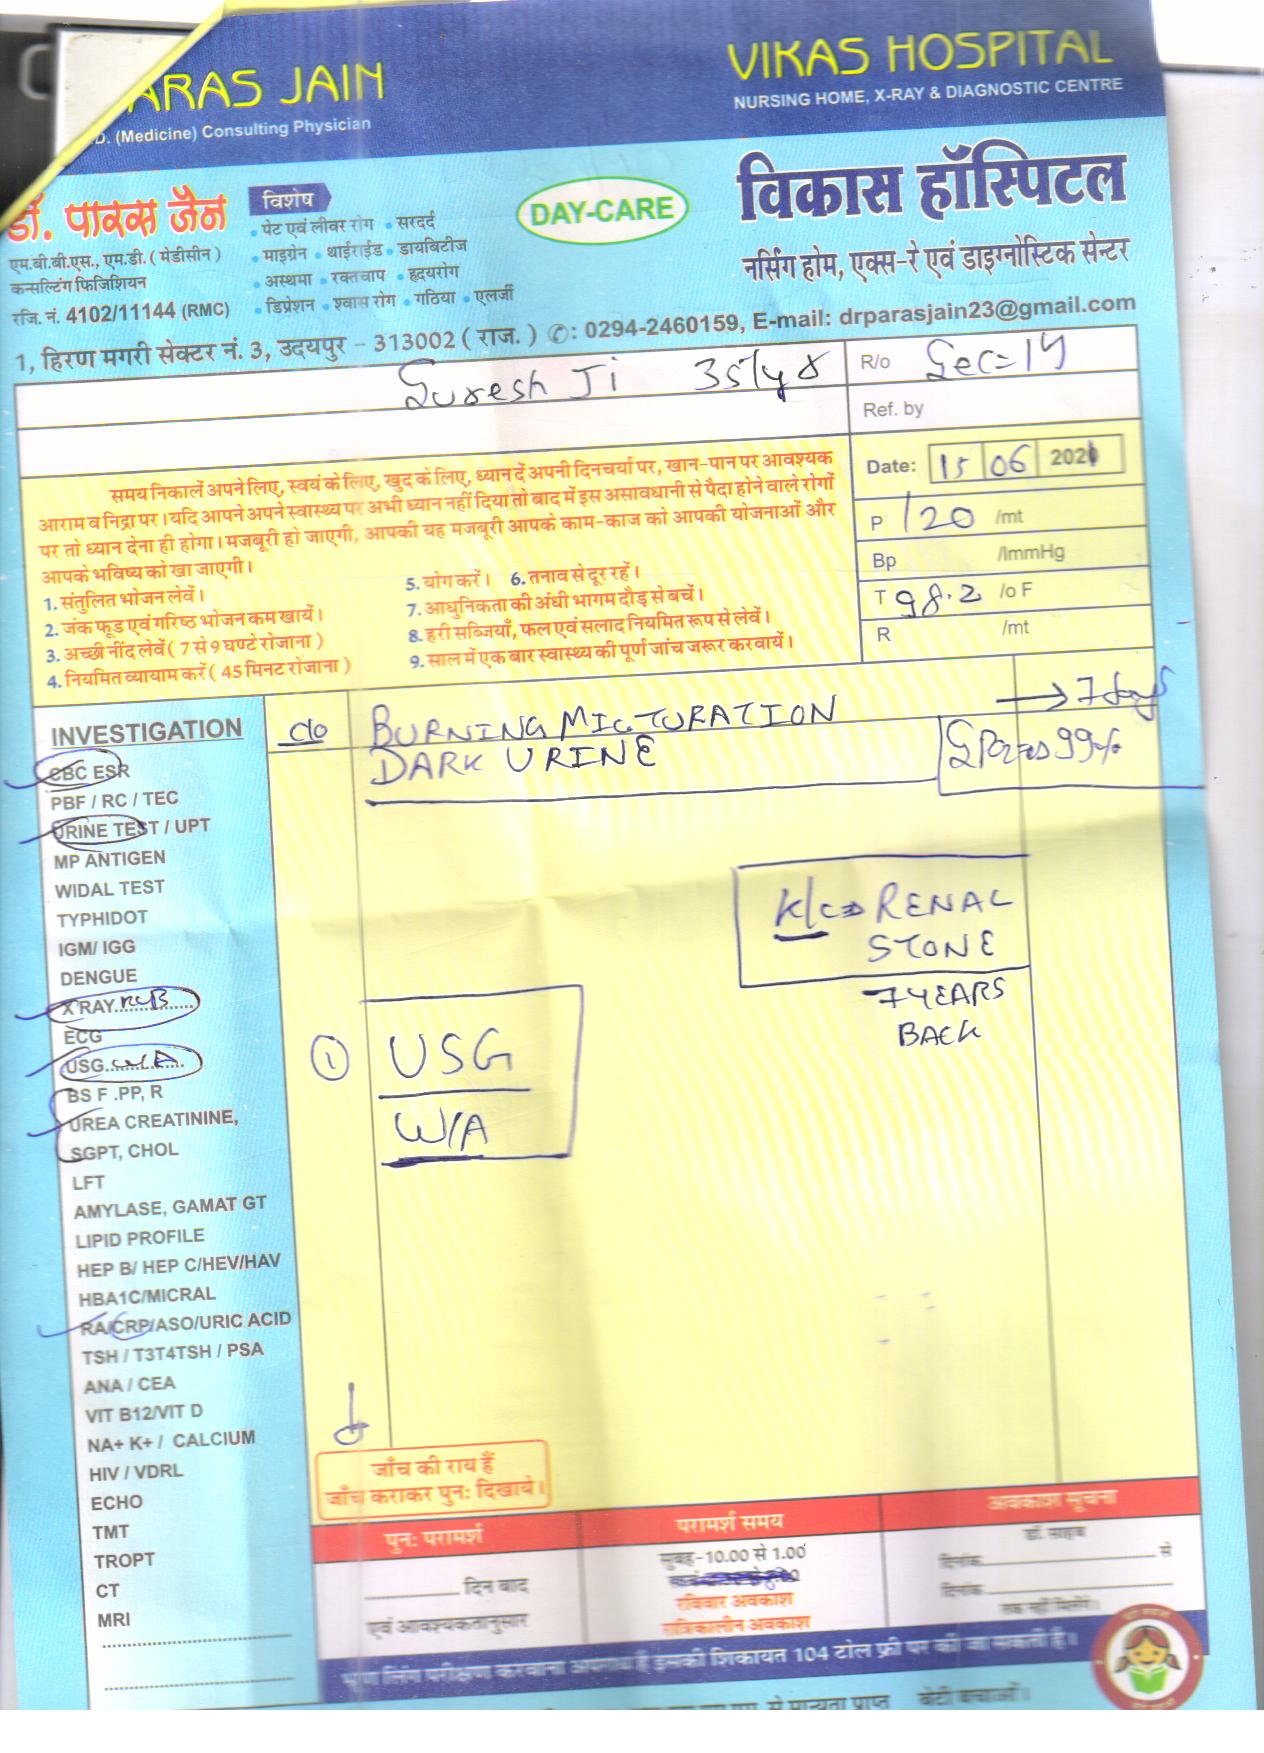 ARAS JAIN
.D. (Medicine) Consulting Physician
VIKAS HOSPITAL
NURSING HOME, X-RAY & DIAGNOSTIC CENTRE
डॉ. पारस जैन
एम.बी.बी.एस., एम.डी. ( मेडीसीन )
कन्सल्टिंग फिजिशियन
रजि. नं. 4102/11144 (RMC)
विशेष
• पेट एवं लीवर रोग • सरदर्द
• माइग्रेन • थाईराईड • डायबिटीज
• अस्थमा • रक्तचाप • हृदयरोग
• डिप्रेशन • श्वास रोग • गठिया • एलर्जी
DAY-CARE
विकास हॉस्पिटल
नर्सिंग होम, एक्स-रे एवं डाइग्नोस्टिक सेन्टर
1, हिरण मगरी सेक्टर नं. 3, उदयपुर – 313002 ( राज. ) ✆: 0294-2460159, E-mail: drparasjain23@gmail.com
Suresh Ji 35/yr
R/o Sec=14
Ref. by
समय निकालें अपने लिए, स्वयं के लिए, खुद के लिए, ध्यान दें अपनी दिनचर्या पर, खान-पान पर आवश्यक
आराम व निद्रा पर। यदि आपने अपने स्वास्थ्य पर अभी ध्यान नहीं दिया तो बाद में इस असावधानी से पैदा होने वाले रोगों
पर तो ध्यान देना ही होगा। मजबूरी हो जाएगी, आपकी यह मजबूरी आपके काम-काज को आपकी योजनाओं और
आपके भविष्य को खा जाएगी।
1. संतुलित भोजन लेवें।
2. जंक फूड एवं गरिष्ठ भोजन कम खायें।
3. अच्छी नींद लेवें ( 7 से 9 घण्टे रोजाना )
4. नियमित व्यायाम करें ( 45 मिनट रोजाना )
5. योग करें। 6. तनाव से दूर रहें।
7. आधुनिकता की अंधी भागम दौड़ से बचें।
8. हरी सब्जियाँ, फल एवं सलाद नियमित रूप से लेवें।
9. साल में एक बार स्वास्थ्य की पूर्ण जांच जरूर करवायें।
Date: 15 06 2021
P 120 /mt
Bp /ImmHg
T 98.2 /o F
R /mt
INVESTIGATION
CBC ESR
PBF / RC / TEC
URINE TEST / UPT
MP ANTIGEN
WIDAL TEST
TYPHIDOT
IGM/ IGG
DENGUE
X'RAY KUB
ECG
USG W/A
BS F .PP, R
UREA CREATININE,
SGPT, CHOL
LFT
AMYLASE, GAMAT GT
LIPID PROFILE
HEP B/ HEP C/HEV/HAV
HBA1C/MICRAL
RA/CRP/ASO/URIC ACID
TSH / T3T4TSH / PSA
ANA / CEA
VIT B12/VIT D
NA+ K+ / CALCIUM
HIV / VDRL
ECHO
TMT
TROPT
CT
MRI
c/o BURNING MICTURATION → 7 days
DARK URINE
99%
K/c RENAL
STONE
7 YEARS
BACK
① USG
W/A
जाँच की राय हैं
जाँच कराकर पुनः दिखाये।
पुनः परामर्श
दिन बाद
एवं आवश्यकतानुसार
परामर्श समय
सुबह-10.00 से 1.00
रविवार अवकाश
रात्रिकालीन अवकाश
अवकाश सूचना
डॉ. साहब
दिनांक से
दिनांक
तक नहीं मिलेंगे।
भ्रूण लिंग परीक्षण करवाना अपराध है इसकी शिकायत 104 टोल फ्री पर की जा सकती है।
से मान्यता प्राप्त बेटी बचाओं।